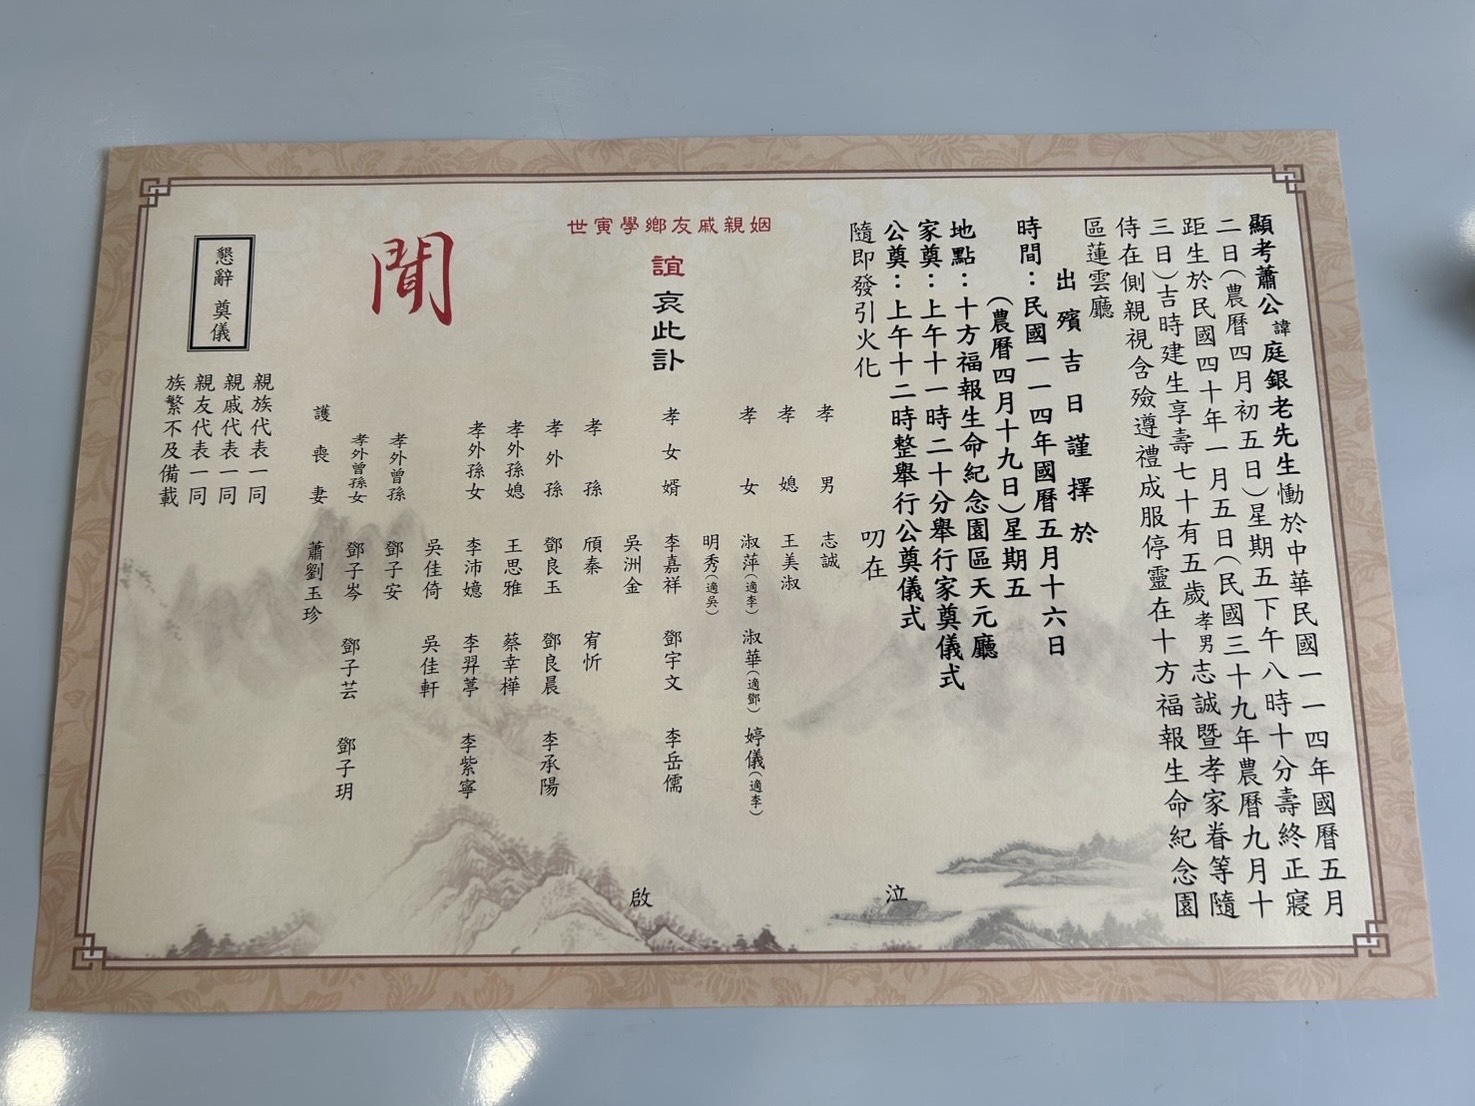 顯考蕭公諱庭銀老先生慟於中華民國一一四年國曆五月
二日(農曆四月初五日)星期五下午八時十分壽終正寢
距生於民國四十年一月五日(民國三十九年農曆九月十
三日)吉時建生享壽七十有五歲孝男志誠暨孝家眷等隨
侍在側親視含殮遵禮成服停靈在十方福報生命紀念園
區蓮雲廳
出殯吉日謹擇於
時間：民國一一四年國曆五月十六日
(農曆四月十九日)星期五
地點：十方福報生命紀念園區天元廳
家奠：上午十一時二十分舉行家奠儀式
公奠：上午十二時整舉行公奠儀式
隨即發引火化
叨在
世寅學鄉友戚親姻
誼哀此訃
聞
孝男 志誠
孝媳 王美淑
孝女 淑萍(適李) 淑華(適鄧) 婷儀(適李)
明秀(適吳)
孝女婿 李嘉祥 鄧宇文 李岳儒
吳洲金
孝孫 頎秦 宥忻
孝外孫 鄧良玉 鄧良晨 李承陽
孝外孫媳 王思雅 蔡幸樺
孝外孫女 李沛嬑 李羿葶 李紫寧
吳佳倚 吳佳軒
孝外曾孫 鄧子安
孝外曾孫女 鄧子岑 鄧子芸 鄧子玥
護喪妻 蕭劉玉珍
泣
啟
懇辭 奠儀
親族代表一同
親戚代表一同
親友代表一同
族繁不及備載